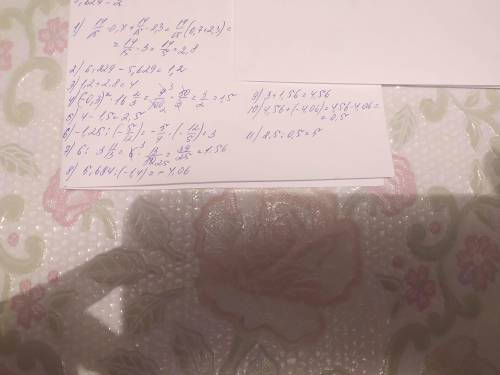 1) 14/15 · 0,7 + 14/15 · 2,3 = 14/15 (0,7+2,3) =
= 14/15 · 3 = 14/5 = 2,8
2) 6,829 - 5,629 = 1,2
3) 1,2 + 2,8 = 4
4) (-0,3)² · 16 2/3 = = 3/2 = 1,5
5) 4 - 1,5 = 2,5
6) -1,25 : (-5/12) = -5/4 · (-12/5) = 3
7) 6 : 3 = = 39/25 = 1,56
8) 5,684 : (-1,4) = -4,06
9) 3 + 1,56 = 4,56
10) 4,56 + (-4,06) = 4,56 - 4,06 =
= 0,5
11) 2,5 : 0,5 = 5